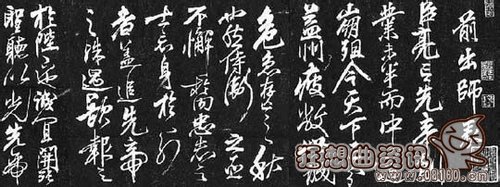 前出師表
臣亮言先帝
業未半而中
崩殂今天下
益州疲敝誠
危急存亡之秋
也然侍衛之臣
不懈於內忠志之
士忘身於外
者蓋追先帝
之殊遇欲報之
於陛下誠宜開張
聖聽以光先帝
狂想曲资讯